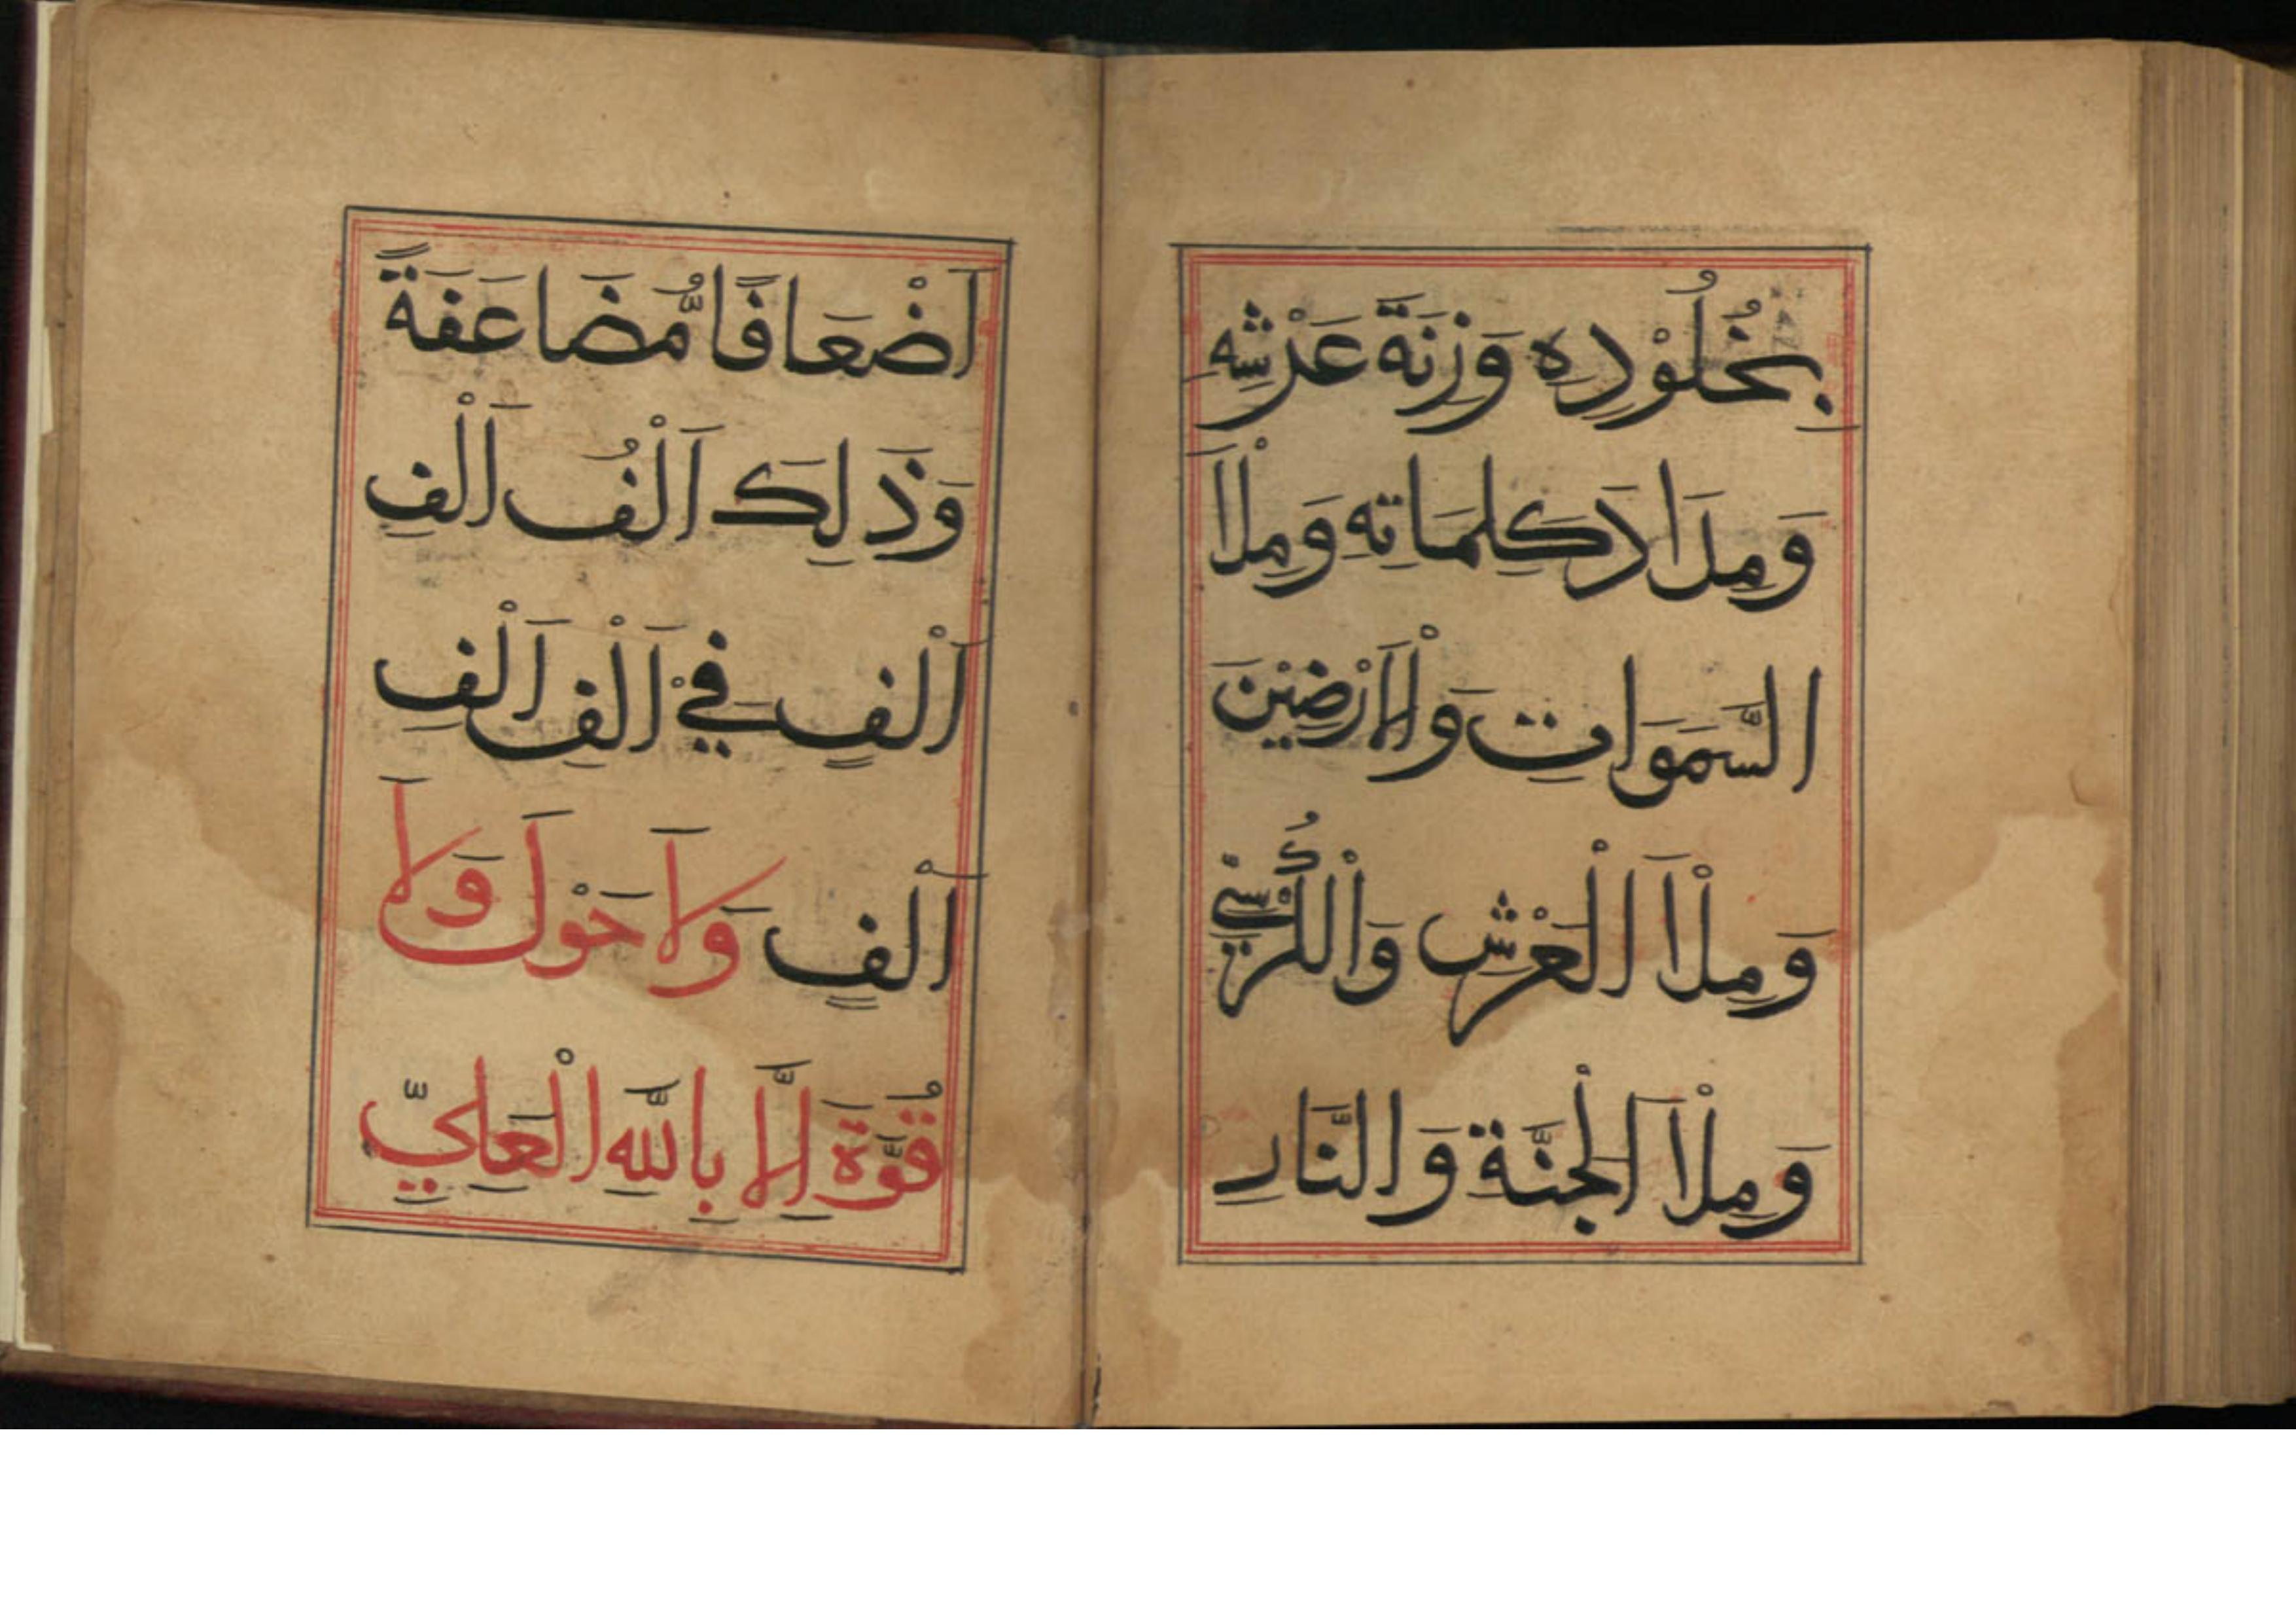 بِخُلُوْدِهٖ وَزِنَةَ عَرْشِهٖ
وَمِدَادَ كَلِمَاتِهٖ وَمِلْاَ
السَّمَوَاتِ وَالْاَرْضِيْنَ
وَمِلْاَ الْعَرْشِ وَالْكُرْسِيِّ
وَمِلْاَ الْجَنَّةِ وَالنَّارِ
اَضْعَافًا مُّضَاعَفَةً
وَذَلِكَ اَلْفُ اَلْفِ
اَلْفٍ فِيْ اَلْفِ اَلْفِ
اَلْفٍ وَلَا حَوْلَ وَلَا
قُوَّةَ اِلَّا بِاللَّهِ الْعَلِيِّ